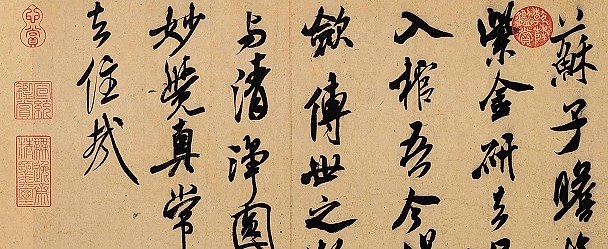 蘇子瞻
紫金研去
入棺吾今
歛傳世之
与清淨圓
妙覺真常
去住哉